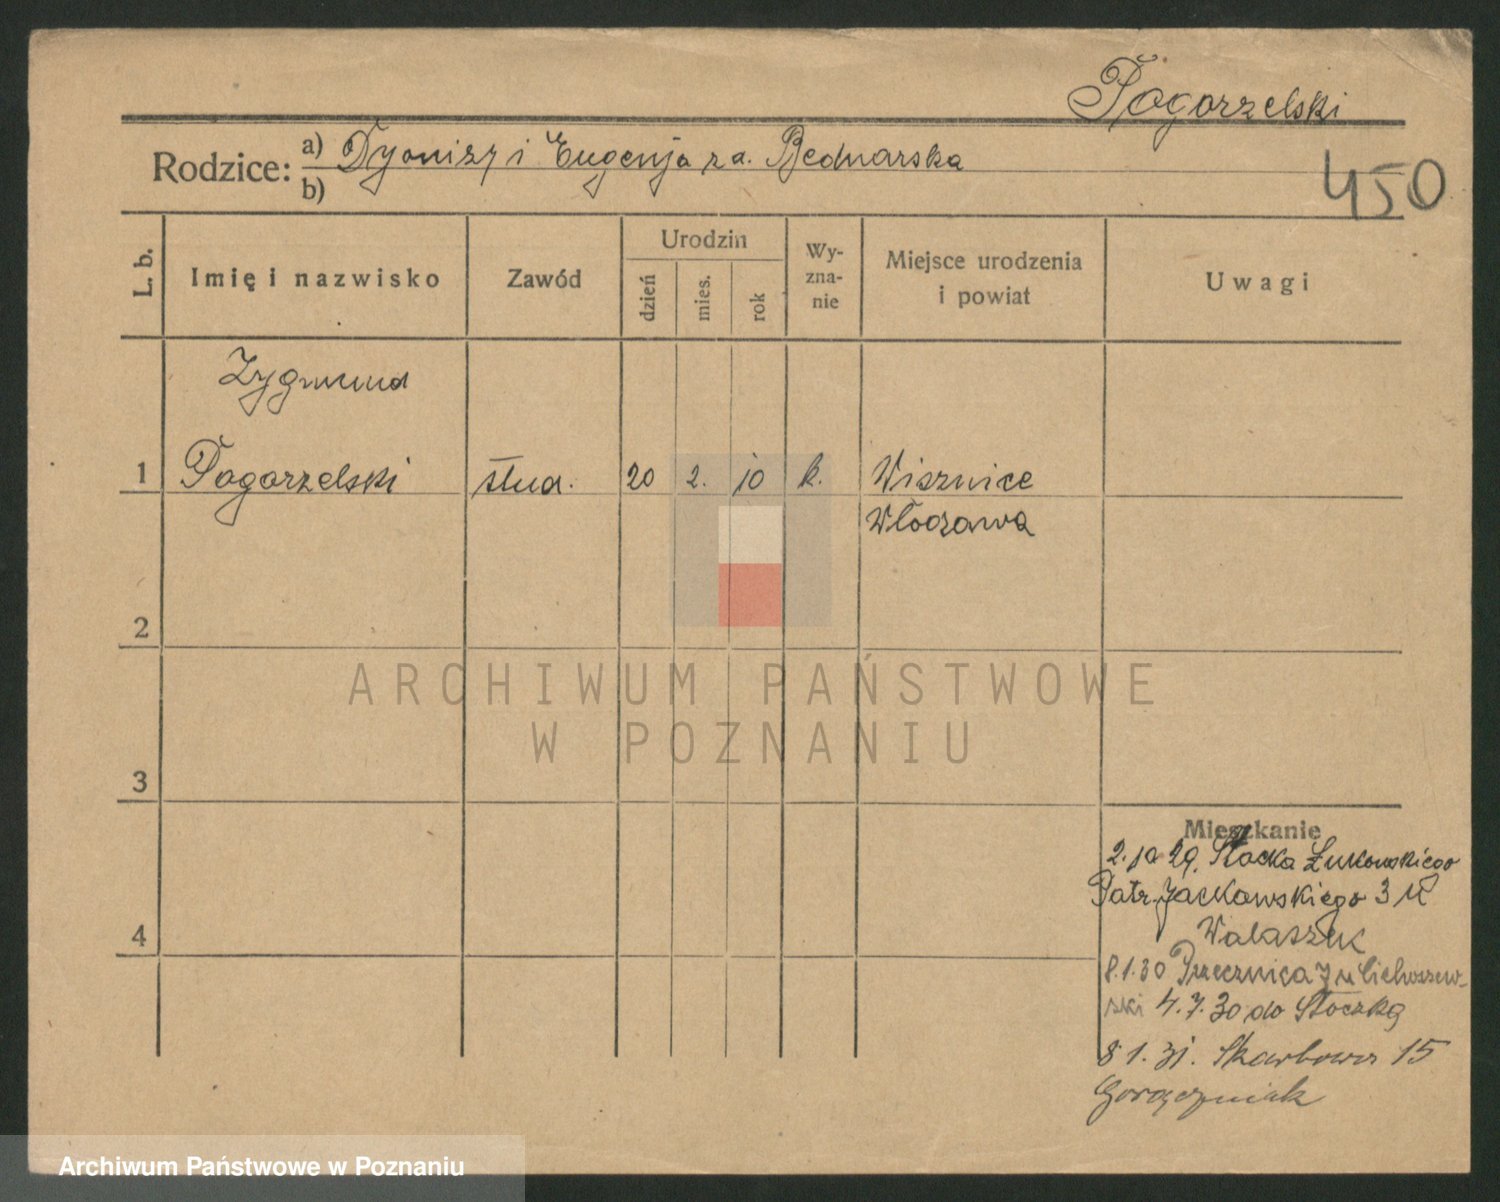 Pogorzelski
Rodzice: a) Dyonizy i Eugenja z d. Bednarska
b)
450
L. b.
Imię i nazwisko
Zawód
Urodzin
dzień
mies.
rok
Wy-
zna-
nie
Miejsce urodzenia
i powiat
Uwagi
Zygmund
1 Pogorzelski stud. 20 2. 10 k. Wisznice
Włodzawa
2
ARCHIWUM PAŃSTWOWE
W POZNANIU
3
Mieszkanie
2.10 29. Łukowskiego
Patr. Jackowskiego 3 u
Walaszek
4
8.1.30 Przecznica 7 u Cichoszew-
ski 4.7.30 do Stoczka
8 1.31. Skarbowa 15
Gorączniak
Archiwum Państwowe w Poznaniu